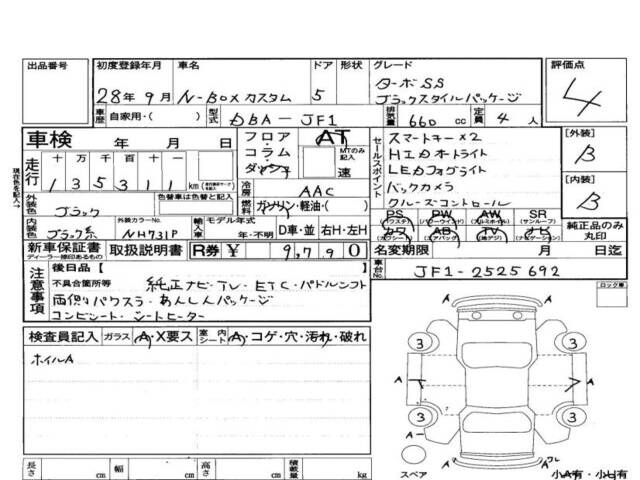 出品番号
初度登録年月 車名 ドア 形状 グレード 評価点
28年9月 N-BOXカスタム 5 ターボSS
ブラックスタイルパッケージ
4
車歴 自家用・( ) 型式 DBA-JF1 排気量 660 cc 定員 4 人
車検 年 月 日
フロア・コラム・ダッシュ AT MTのみ記入 速
セールスポイント
スマートキー×2
HIDオートライト
LEDフォグライト
バックカメラ
クルーズコントロール
[外装] B
[内装] B
現在色を記入→
走行 十 万 千 百 十 一
1 3 5 3 1 1 km
冷房 AAC
外装色 ブラック 色替車は色替と記入
燃料 ガソリン・軽油・( )
内装色 ブラック系 外装カラーNo. NH731P
輸入車 モデル年式 年・不明 D車・並 右H・左H
PS (パワステ) PW (パワーウインド) AW (アルミホイル) SR (サンルーフ)
カワ (カワシート) AB (エアバック) TV (地デジ) ナビ (ナビゲーション)
純正品のみ丸印
新車保証書 ディーラー捺印あるもの 取扱説明書 R券 ¥ 9,790
名変期限 月 日
車台No. JF1-2525692
注意事項
後日品 【 】
不具合箇所等 純正ナビ・TV・ETC・パドルシフト
両側パワスラ・あんしんパッケージ
コンビシート・シートヒーター
ロック車
検査員記入 ガラス A・X要ス 室内シート A・コゲ・穴・汚れ・破れ
ホイルA
3 3
A A
3 3
A
A
スペア
小A有・小U有
長さ cm 幅 cm 高さ cm 積載量 kg